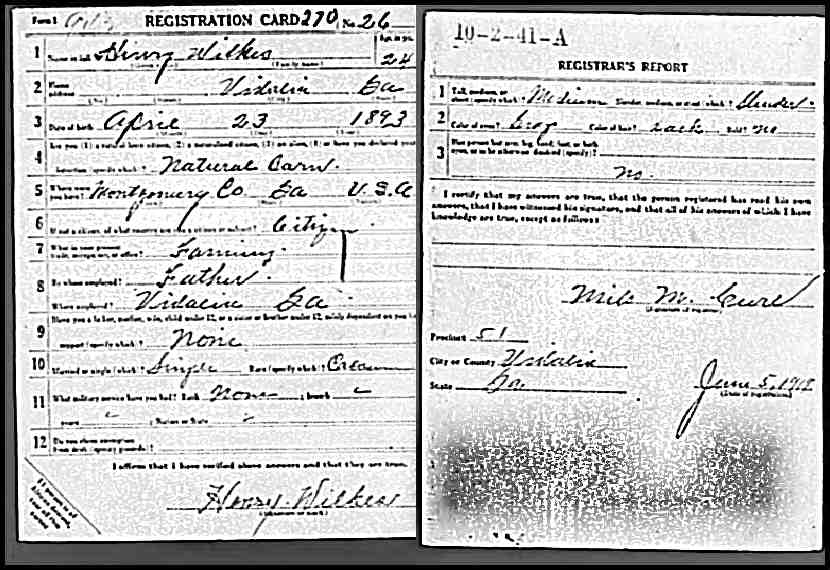 Form 1 REGISTRATION CARD 270 No. 26
1 Name in full Henry Wilkes Age, in yrs. 24
(Given name) (Family name)
2 Home address Vidalia Ga
(No.) (Street) (City) (State)
3 Date of birth April 23 1893
(Month) (Day) (Year)
Are you (1) a natural born citizen, (2) a naturalized citizen, (3) an alien, (4) or have you declared your
4 intention (specify which)? Natural Born.
5 Where were you born? Montgomery Co Ga U.S.A
6 If not a citizen, of what country are you a citizen or subject? Citizen
7 What is your present trade, occupation, or office? Farming.
8 By whom employed? Father.
Where employed? Vidalia Ga.
9 Have you a father, mother, wife, child under 12, or a sister or brother under 12, solely dependent on you for
support (specify which)? None
10 Married or single (which)? Single Race (specify which)?
11 What military service have you had? Rank None ; branch
years ; Nation or State
12 Do you claim exemption from draft (specify grounds)?
I affirm that I have verified above answers and that they are true.
Henry Wilkes
(Signature or mark)
10-2-41-A
REGISTRAR'S REPORT
1 Tall, medium, or short (specify which)? Medium Slender, medium, or stout (which)? Slender
2 Color of eyes? Color of hair? Bald? no
3 Has person lost arm, leg, hand, foot, or both eyes, or is he otherwise disabled (specify)?
no.
I certify that my answers are true, that the person registered has read his own
answers, that I have witnessed his signature, and that all of his answers of which I have
knowledge are true, except as follows:
M.
(Signature of registrar)
Precinct 51
City or County Vidalia
State Ga.
June 5, 1917
(Date of registration)